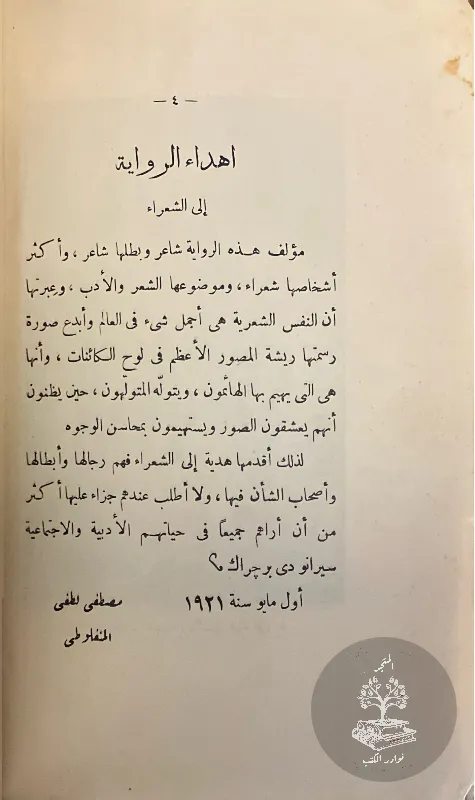 — ٤ —
اهداء الرواية
إلى الشعراء
مؤلف هذه الرواية شاعر وبطلها شاعر ، وأكثر
أشخاصها شعراء ، وموضوعها الشعر والأدب ، وعبرتها
أن النفس الشعرية هى أجمل شىء فى العالم وأبدع صورة
رسمتها ريشة المصور الأعظم فى لوح الكائنات ، وأنها
هى التى يهيم بها الهائمون ، ويتوله المتولهون ، حين يظنون
أنهم يعشقون الصور ويستهيمون بمحاسن الوجوه
لذلك أقدمها هدية إلى الشعراء فهم رجالها وأبطالها
وأصحاب الشأن فيها ، ولا أطلب عندهم جزاء عليها أكثر
من أن أراهم جميعاً فى حياتهم الأدبية والاجتماعية
سيرانو دى برچراك
أول مايو سنة ١٩٢١ مصطفى لطفى
المنفلوطى
المتجر
نوادر الكتب